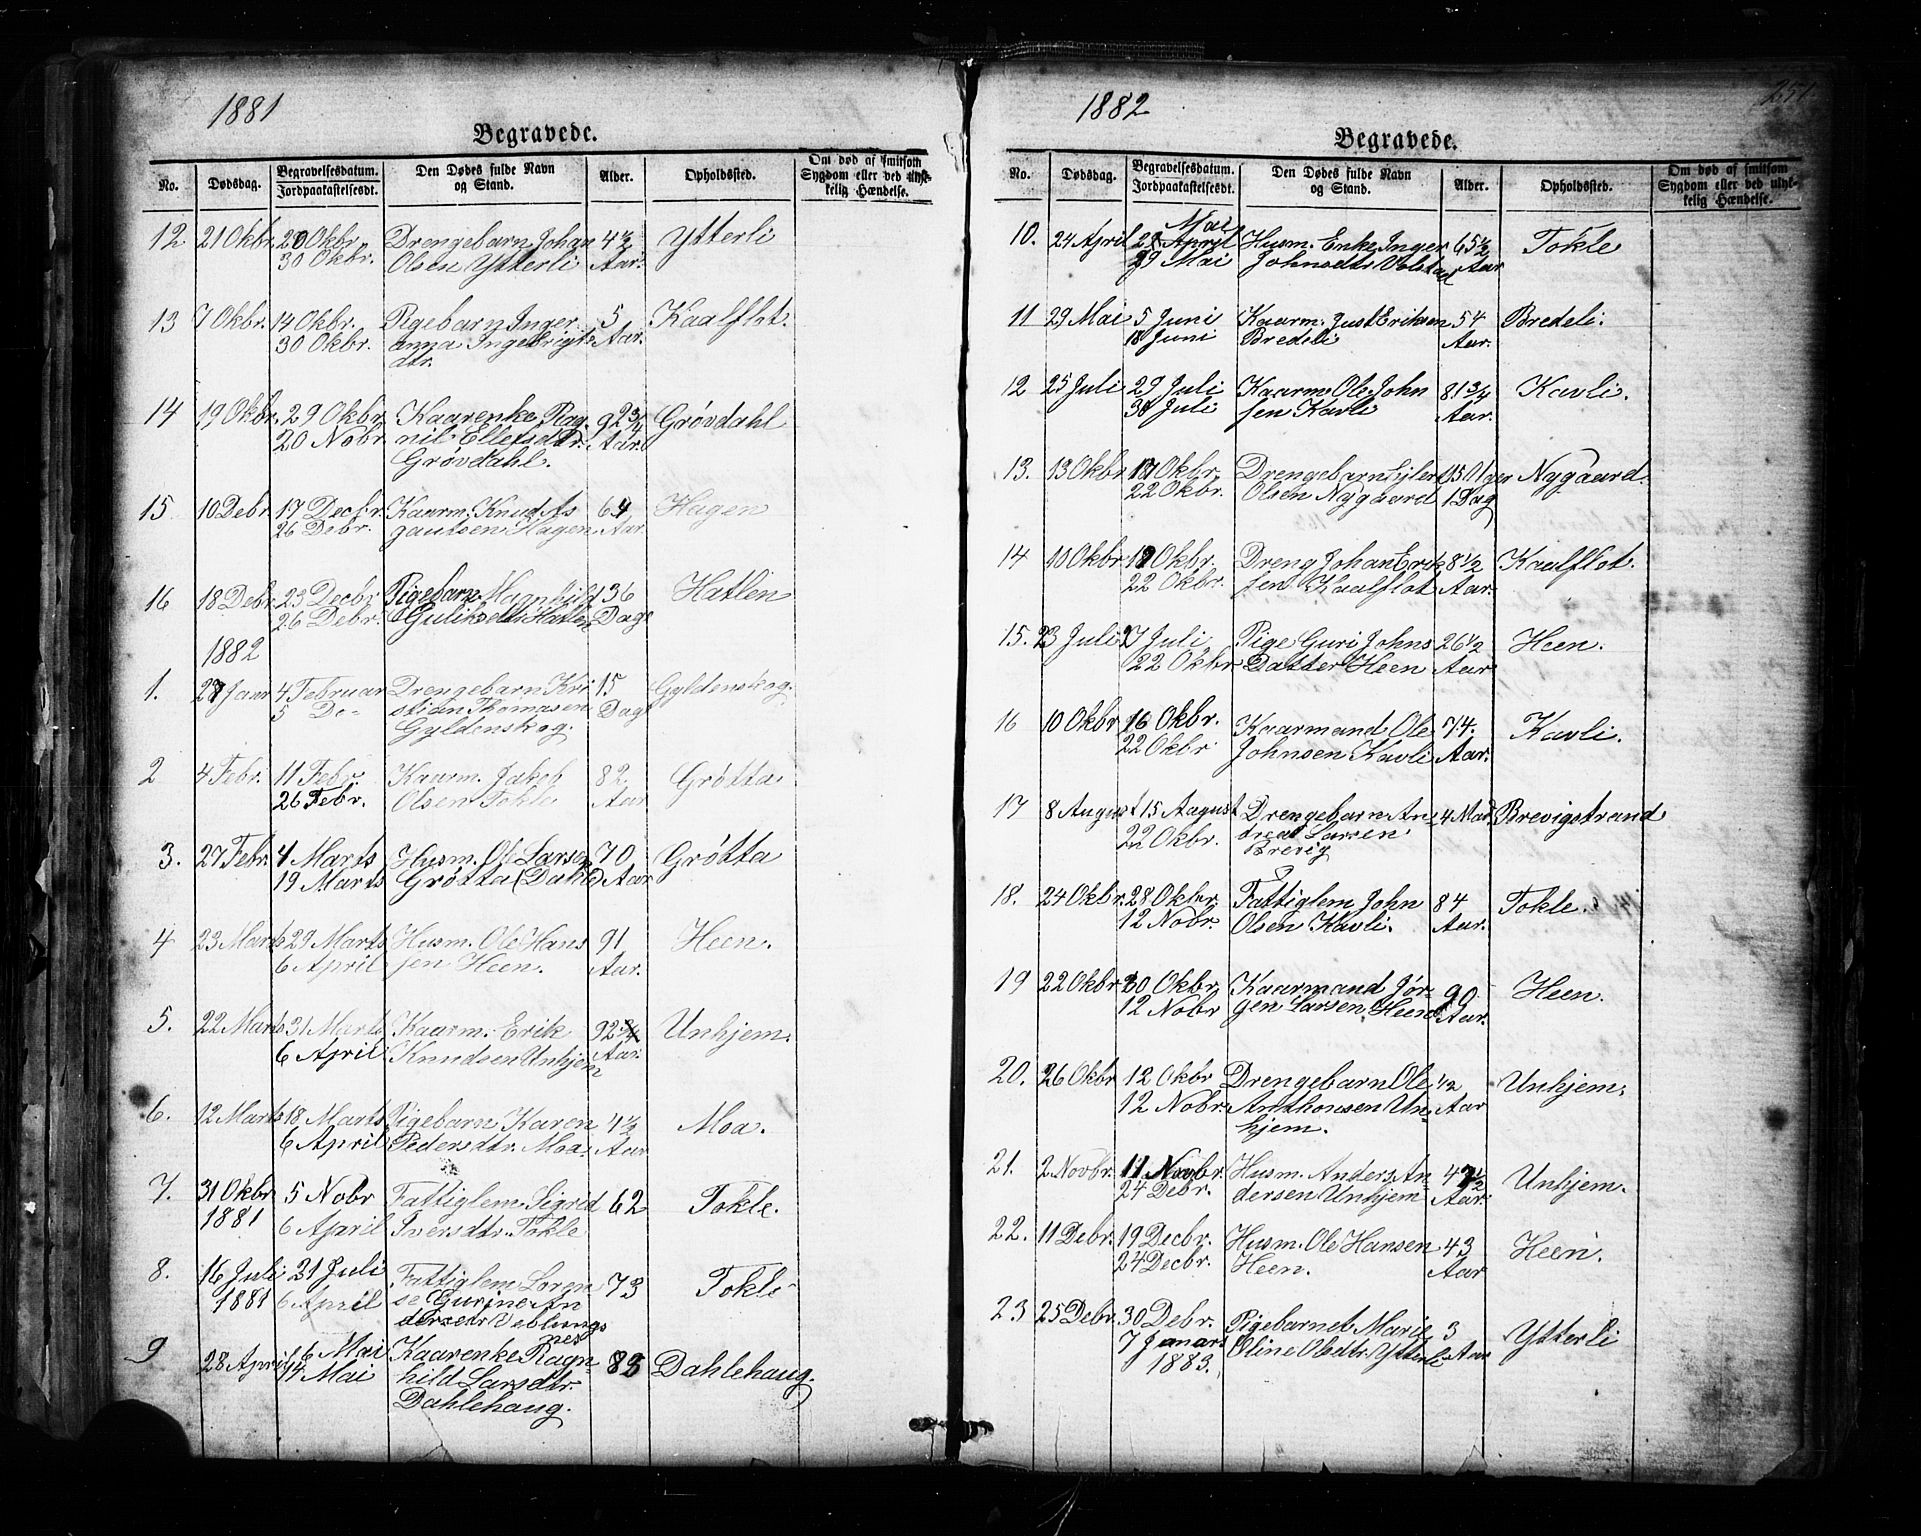 1881
Begravede.
No. Dødsdag. Begravelsesdatum. Jordpaakastelsesdt. Den Dødes fulde Navn og Stand. Alder. Opholdssted. Om død af smitsom Sygdom eller ved ulyk-kelig Hændelse.
12 21 Okbr. 29 Okbr. Drengebarn Johan 4½ Ytterli
30 Okbr. Olsen Ytterli Aar.
13 7 Okbr. 14 Okbr. Pigebarn Inger 5 Kaalflot.
30 Okbr. Anna Ingebrigts Aar.
dtr.
14 19 Okbr. 29 Okbr. Kaarenke Rag- 92¾ Grøvdahl
20 Nobr. nil Ellefsdtr. Aar.
Grøvdahl.
15 10 Debr. 17 Decbr. Kaarm. Knud As 64 Hagen
26 Debr. gautsen Hagen Aar.
16 18 Debr. 23 Decbr. Pigebarn Magnhild 36 Hatlen
26 Debr. Guliksdtr Hatlen Dage
1882
1. 27 Jaar 4 Februar Drengebarn Kri 15 Gyldenskog.
5 Do- stian Thomasen Dage
Gyldenskog.
2 4 Febr. 11 Febr. Kaarm. Jakob 82. Grøtta
26 Febr. Olsen Tokle Aar
3. 27 Febr. 4 Marts Husm. Ole Larsen 70 Grøtta
19 Marts Grøtta (Dahle) Aar
4 23 Marts 29 Marts Husm. Ole Hans 91 Heen.
6 April sen Heen. Aar.
5. 22 Marts 31 Marts Kaarm. Erik 92¾ Unhjem.
6 April Knudsen Unhjem Aar.
6. 12 Marts 18 Marts Pigebarn Karen 4½ Moa.
6 April Pedersdtr. Moa. Aar
7. 31 Okbr 5 Nobr Fattiglem Sigrid 62 Tokle.
1881 6 April Iversdtr. Tokle
8. 16 Juli 21 Juli Fattiglem Loren 73 Tokle
1881 6 April se Gurine An
dersdtr Veblungs
nes
9 28 April 6 Mai Kaarenke Ragn- 83 Dahlehaug.
14 Mai hild Larsdtr.
Dahlehaug.
1882
251
Begravede.
No. Dødsdag. Begravelsesdatum. Jordpaakastelsesdt. Den Dødes fulde Navn og Stand. Alder. Opholdssted. Om død af smitsom Sygdom eller ved ulyk-kelig Hændelse.
Mai
10. 24 April April Husm. Enke Inger 65½ Tokle
29 Mai Johnsdtr Volstad Aar
11 29 Mai 5 Juni Kaarm. Just Eriksen 54 Bredeli.
18 Juni Bredeli Aar.
12 25 Juli 29 Juli Kaarm. Ole John 81¾ Kavli.
30 Juli sen Kavli Aar.
13. 13 Okbr 17 Okbr. Drengebarn 15 Uger Nygaard.
22 Okbr. Olsen Nygaard 1 Dag
14 10 Okbr 19 Okbr. Dreng Johan Erik 8½ Kaalflot.
22 Okbr. sen Kaalflot Aar.
15. 23 Juli 27 Juli Pige Guri Johns 26½ Heen.
22 Okbr Datter Heen Aar.
16 10 Okbr 16 Okbr. Kaarmand Ole 74. Kavli.
22 Okbr. Johnsen Kavli Aar.
17 8 August 15 August Drengebarn An 4 Mar. Brevigstrand
22 Okbr. dreas Larsen
Brevig
18. 24 Okbr. 28 Okbr Fattiglem John 84 Tokle.
12 Nobr. Olsen Kavli. Aar.
19 22 Okbr 30 Okbr. Kaarmand Jør- 90 Heen.
12 Nobr gen Larsen Heen Aar.
20. 26 Okbr 12 Okbr Drengebarn Ole ½ Unhjem.
12 Nobr. Anthonsen Un- Aar
hjem.
21. 2 Novbr. 11 Novbr. Husm. Anders An 47½ Unhjem.
24 Debr. dersen Unhjem Aar.
22. 11 Debr. 19 Decbr. Husm. Ole Hansen 43 Heen.
24 Decbr. Heen. Aar
23 25 Debr. 30 Debr. Pigebarnet Marie 3 Ytterli
7 Januar Oline Olsdtr. Ytterli Aar
1883.